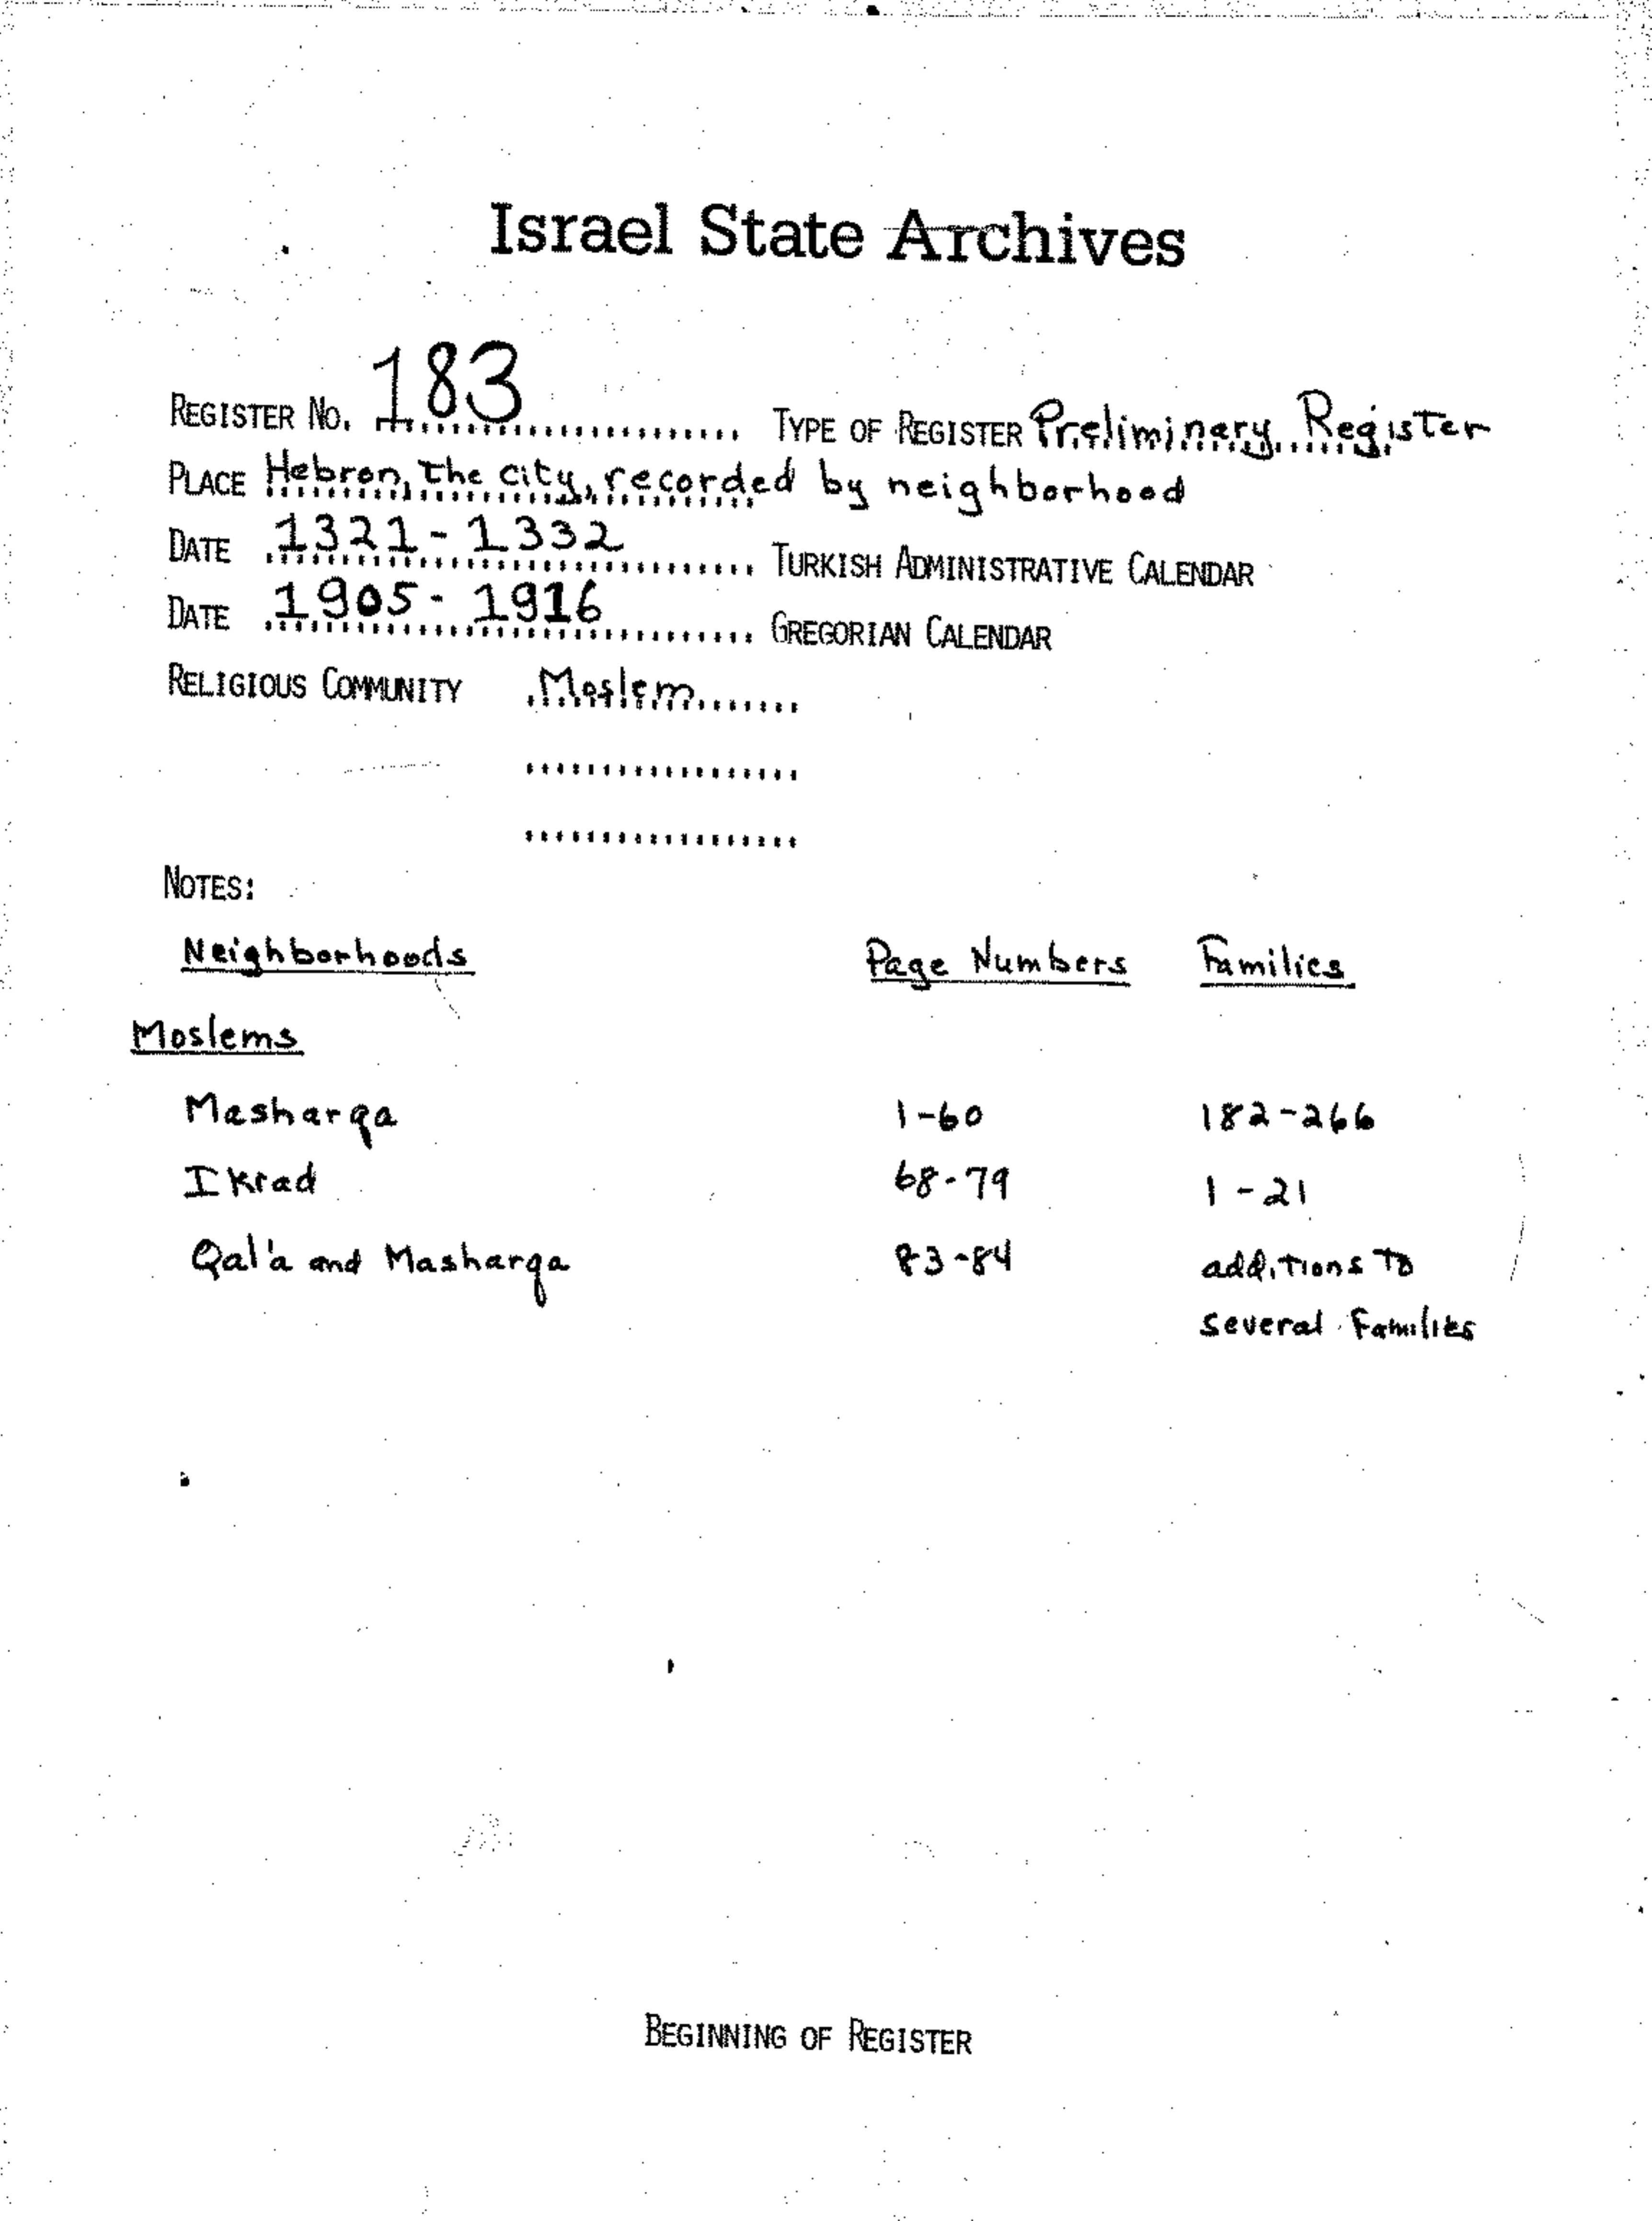 Israel State Archives
REGISTER NO. 183 TYPE OF REGISTER Preliminary Register
PLACE Hebron, the city, recorded by neighborhood
DATE 1321-1332 TURKISH ADMINISTRATIVE CALENDAR
DATE 1905-1916 GREGORIAN CALENDAR
RELIGIOUS COMMUNITY Moslem
NOTES:
Neighborhoods Page Numbers Families
Moslems
Masharqa 1-60 182-266
Ikrad 68-79 1-21
Qal'a and Masharqa 83-84 additions to
several families
BEGINNING OF REGISTER